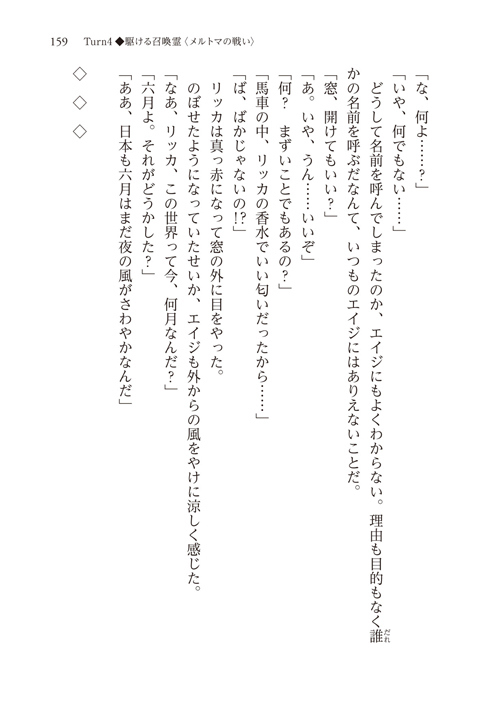 159　Turn4 ◆駆ける召喚霊〈メルトマの戦い〉
「な、何よ……？」
「いや、何でもない……」
　どうして名前を呼んでしまったのか、エイジにもよくわからない。理由も目的もなく誰だれ
かの名前を呼ぶだなんて、いつものエイジにはありえないことだ。
「窓、開けてもいい？」
「あ。いや、うん……いいぞ」
「何？　まずいことでもあるの？」
「馬車の中、リッカの香水でいい匂いだったから……」
「ば、ばかじゃないの!?」
　リッカは真っ赤になって窓の外に目をやった。
　のぼせたようになっていたせいか、エイジも外からの風をやけに涼しく感じた。
「なあ、リッカ、この世界って今、何月なんだ？」
「六月よ。それがどうかした？」
「ああ、日本も六月はまだ夜の風がさわやかなんだ」
◇　◇　◇